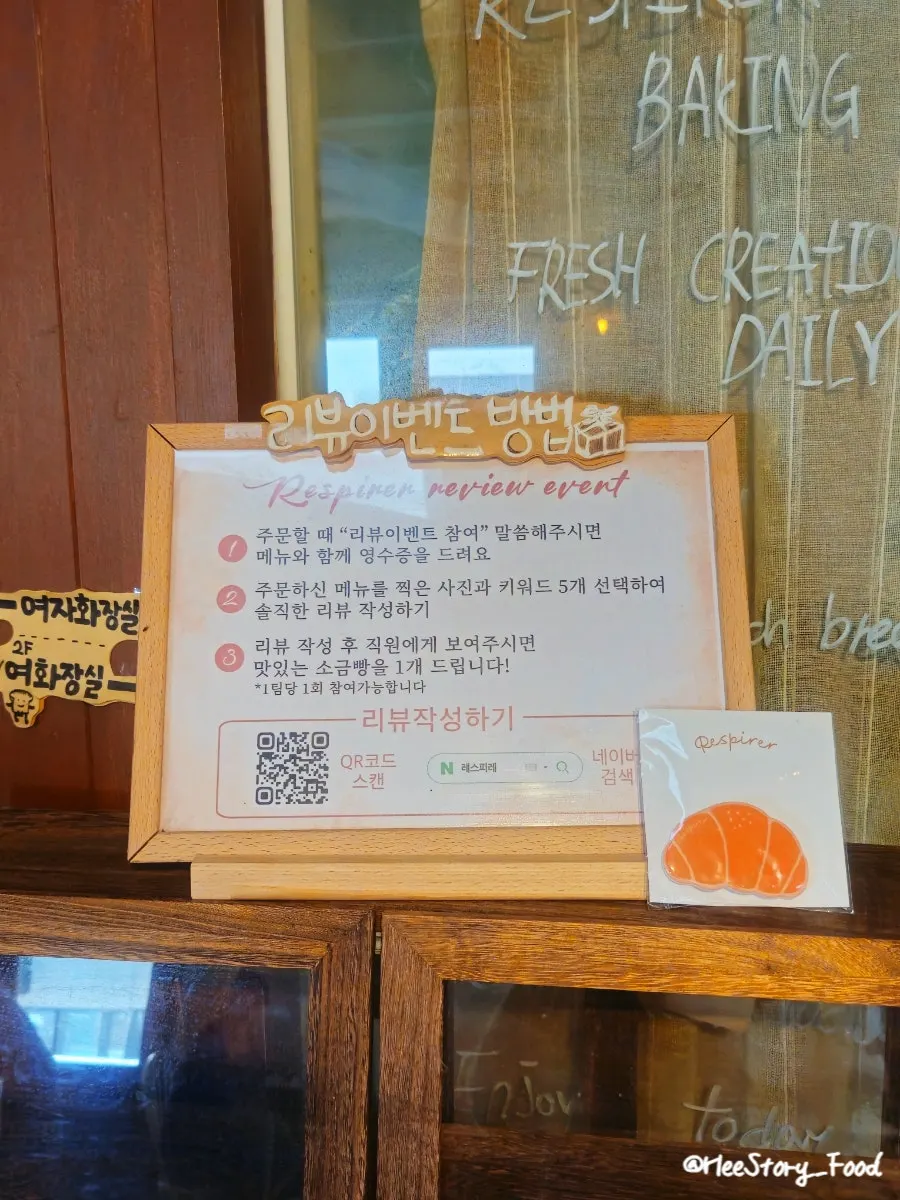 BAKING
FRESH CREATIO
DAILY
리뷰이벤트 방법
Respirer review event
1 주문할 때 “리뷰이벤트 참여” 말씀해주시면
메뉴와 함께 영수증을 드려요
2 주문하신 메뉴를 찍은 사진과 키워드 5개 선택하여
솔직한 리뷰 작성하기
3 리뷰 작성 후 직원에게 보여주시면
맛있는 소금빵을 1개 드립니다!
*1팀당 1회 참여가능합니다
리뷰작성하기
QR코드
스캔
N 레스피레
네이버
검색
여자화장실
2F
여화장실
Respirer
Enjoy
today
@HeeStory_Food